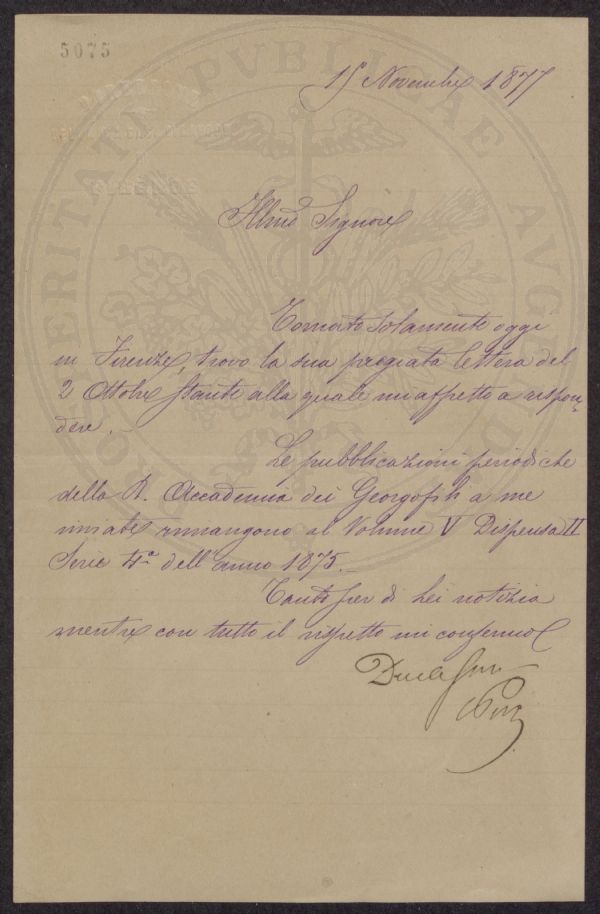 5075
PROSPERITATI PUBLICAE AUG
15 Novembre 1877
Illmo Signore
Tornato solamente oggi
in Firenze, trovo la sua pregiata lettera del
2 Ottobre stante alla quale mi affretto a rispon-
dere. —
Le pubblicazioni periodiche
della R. Accademia dei Georgofili a me
inviate rimangono al Volume V Dispensa II
Serie 4a dell'anno 1875. —
Tanto per di Lei notizia
mentre con tutto il rispetto mi confermo